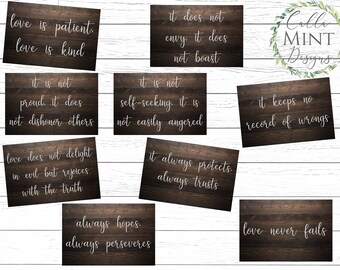 love is patient,
love is kind
it does not
envy. it does
not boast
Calli
MINT
Designs
it is not
proud. it does
not dishonor others
it is not
self-seeking. it is
not easily angered
it keeps no
record of wrongs
love does not delight
in evil but rejoices
with the truth
it always protects,
always trusts
always hopes,
always perseveres
love never fails